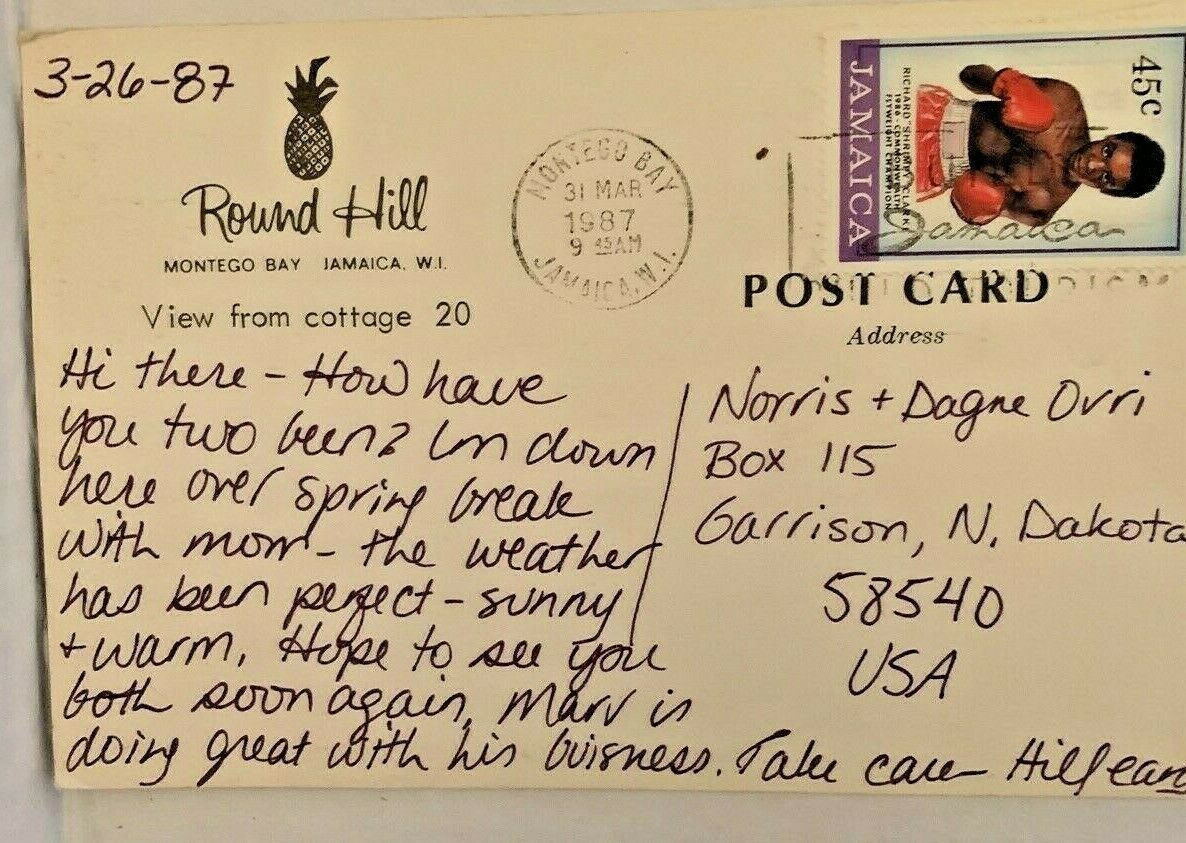 3-26-87
Round Hill
MONTEGO BAY JAMAICA, W.I.
View from cottage 20
MONTEGO BAY
31 MAR
1987
9 45AM
JAMAICA, W.I.
45c
JAMAICA
RICHARD "SHRIMPY" CLARKE
1986 - COMMONWEALTH
FLYWEIGHT CHAMPION
Jamaica
POST CARD
Address
Hi there - How have
you two been? Im down
here over spring break
with mom - the weather
has been perfect - sunny
+ warm. Hope to see you
both soon again. Marv is
doing great with his buisness. Take care -
Norris + Dagne Ovri
Box 115
Garrison, N. Dakota
58540
USA